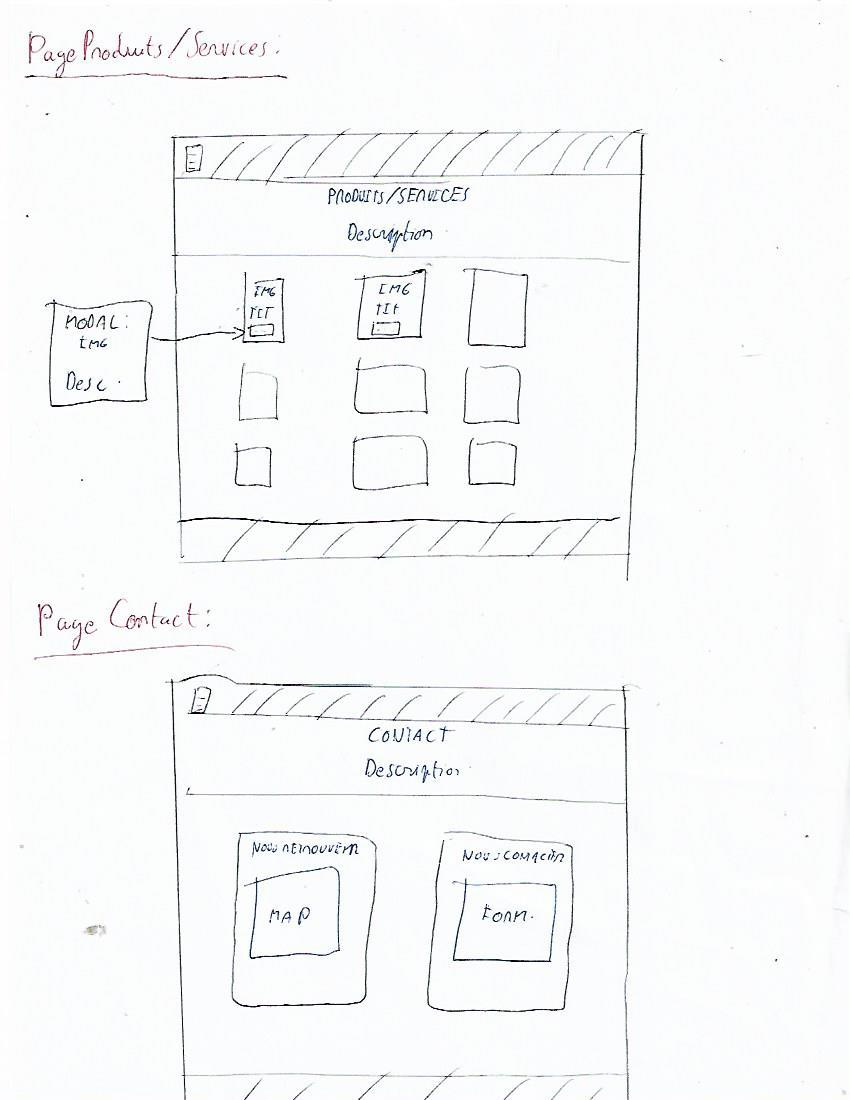 Page Produits/Services:
PRODUITS/SERVICES
Description
IMG
TIT
IMG
TIT
MODAL:
IMG
Desc.
Page Contact:
CONTACT
Description
NOUS RETROUVER
MAP
NOUS CONTACTER
FORM.